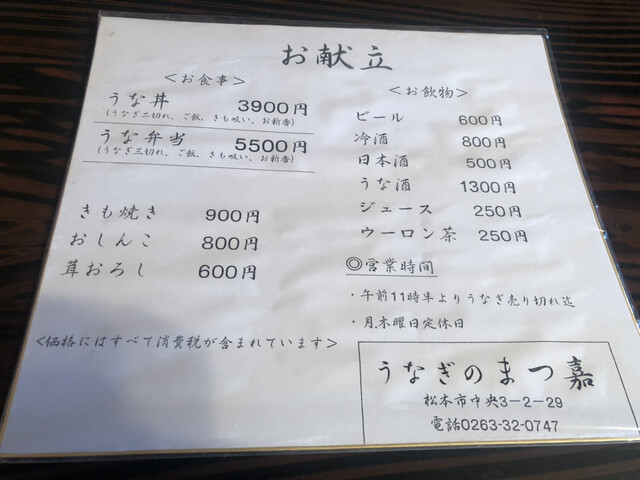 お献立
<お食事>
うな丼 3900円
(うなぎ二切れ、ご飯、きも吸い、お新香)
うな弁当 5500円
(うなぎ三切れ、ご飯、きも吸い、お新香)
きも焼き 900円
おしんこ 800円
茸おろし 600円
<価格にはすべて消費税が含まれています>
<お飲物>
ビール 600円
冷酒 800円
日本酒 500円
うな酒 1300円
ジュース 250円
ウーロン茶 250円
◎営業時間
・午前11時半よりうなぎ売り切れ迄
・月.木曜日定休日
うなぎのまつ嘉
松本市中央3-2-29
電話0263-32-0747